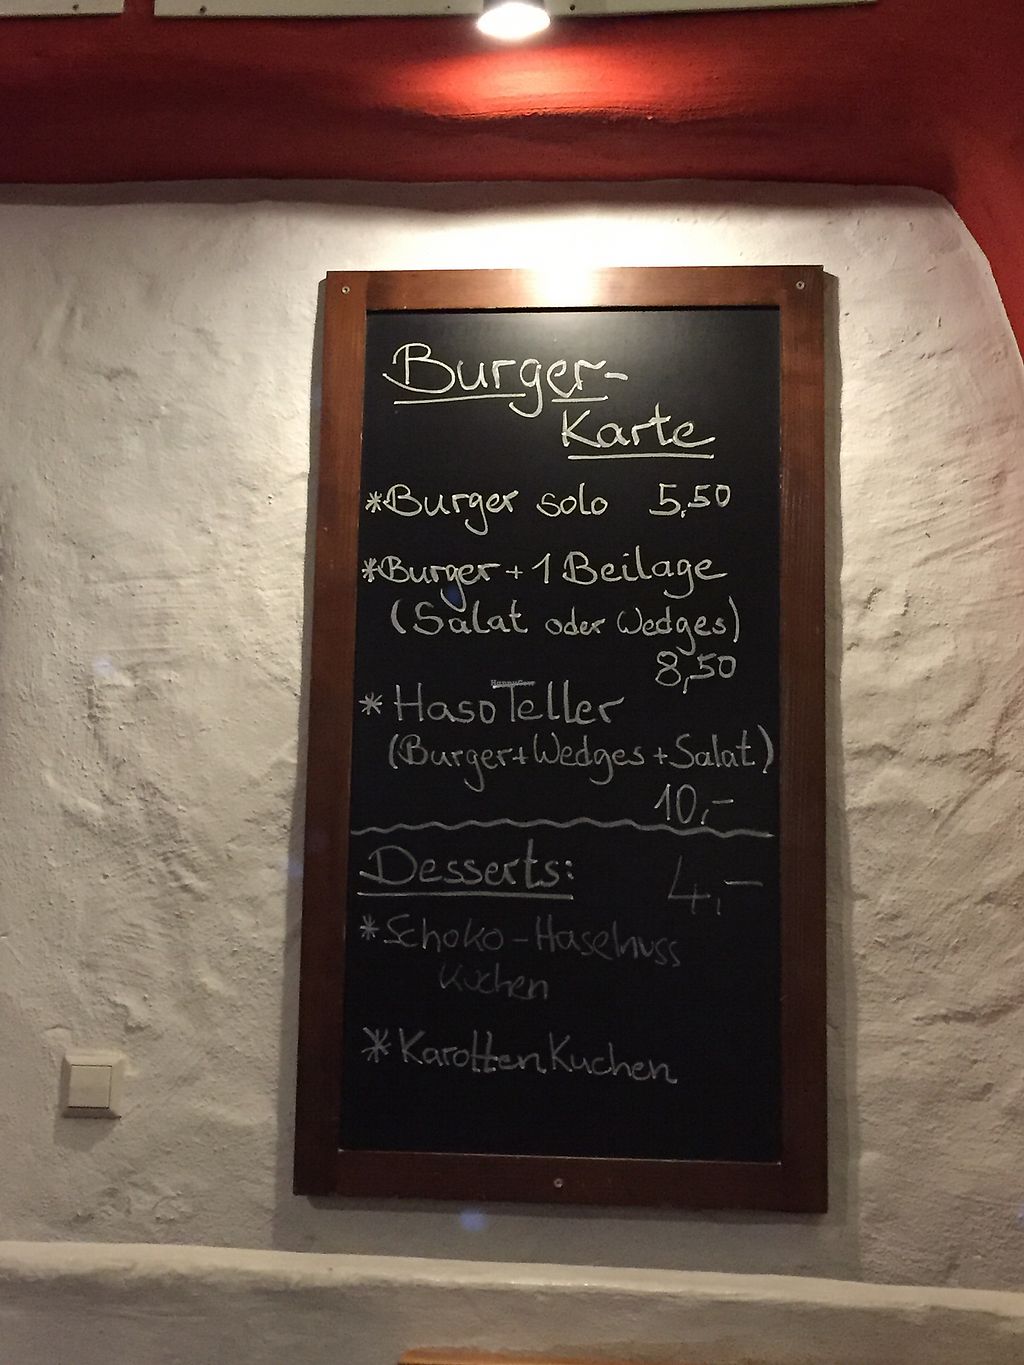 Burger-
Karte
*Burger solo 5,50
*Burger + 1 Beilage
(Salat oder Wedges)
8,50
HappyCow
* Haso Teller
(Burger+Wedges+Salat)
10,-
Desserts: 4,-
*Schoko-Haselnuss
Kuchen
*Karotten Kuchen